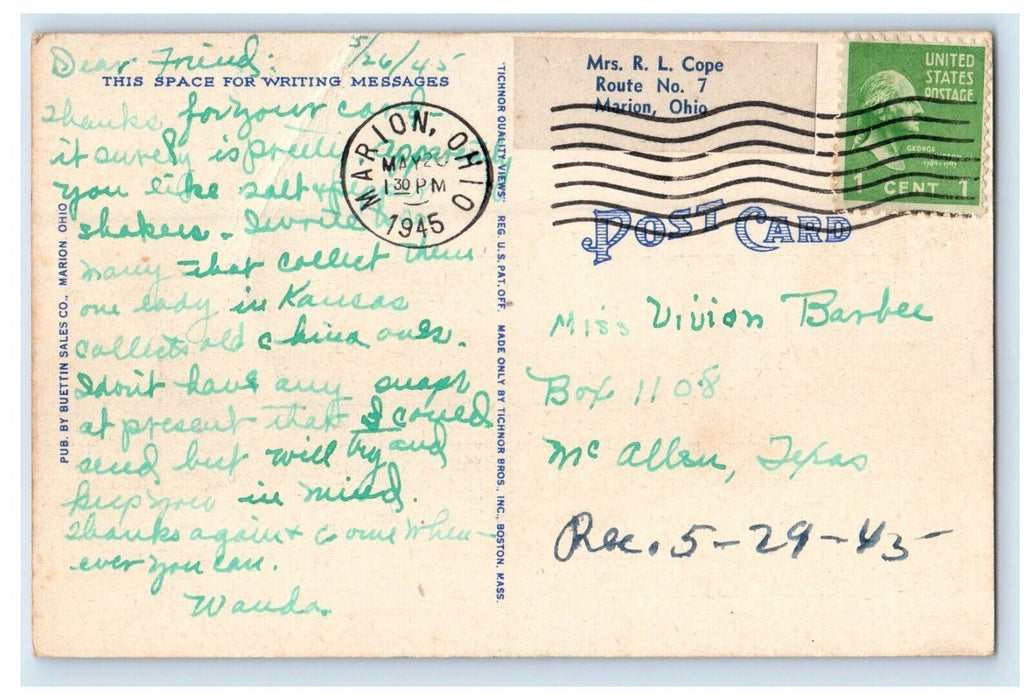 Dear Friend: 5/26/45
THIS SPACE FOR WRITING MESSAGES
Thanks for your card
it surely is pretty.
you like salt &
shakers. I write
many that collect them
one lady in Kansas
collects old china ones.
I don't have any snaps
at present that I could
send but will try and
keep you in mind.
Thanks again & come when-
ever you can.
Wanda
PUB. BY BUETTIN SALES CO., MARION, OHIO
"TICHNOR QUALITY VIEWS" REG. U.S. PAT. OFF. MADE ONLY BY TICHNOR BROS., INC., BOSTON, MASS.
MARION, OHIO
MAY
1 30 PM
1945
Mrs. R. L. Cope
Route No. 7
Marion, Ohio
UNITED
STATES
POSTAGE
GEORGE
1 CENT 1
POST CARD
Miss Vivian Barbee
Box 1108
Mc Allen, Texas
Rec. 5-29-45